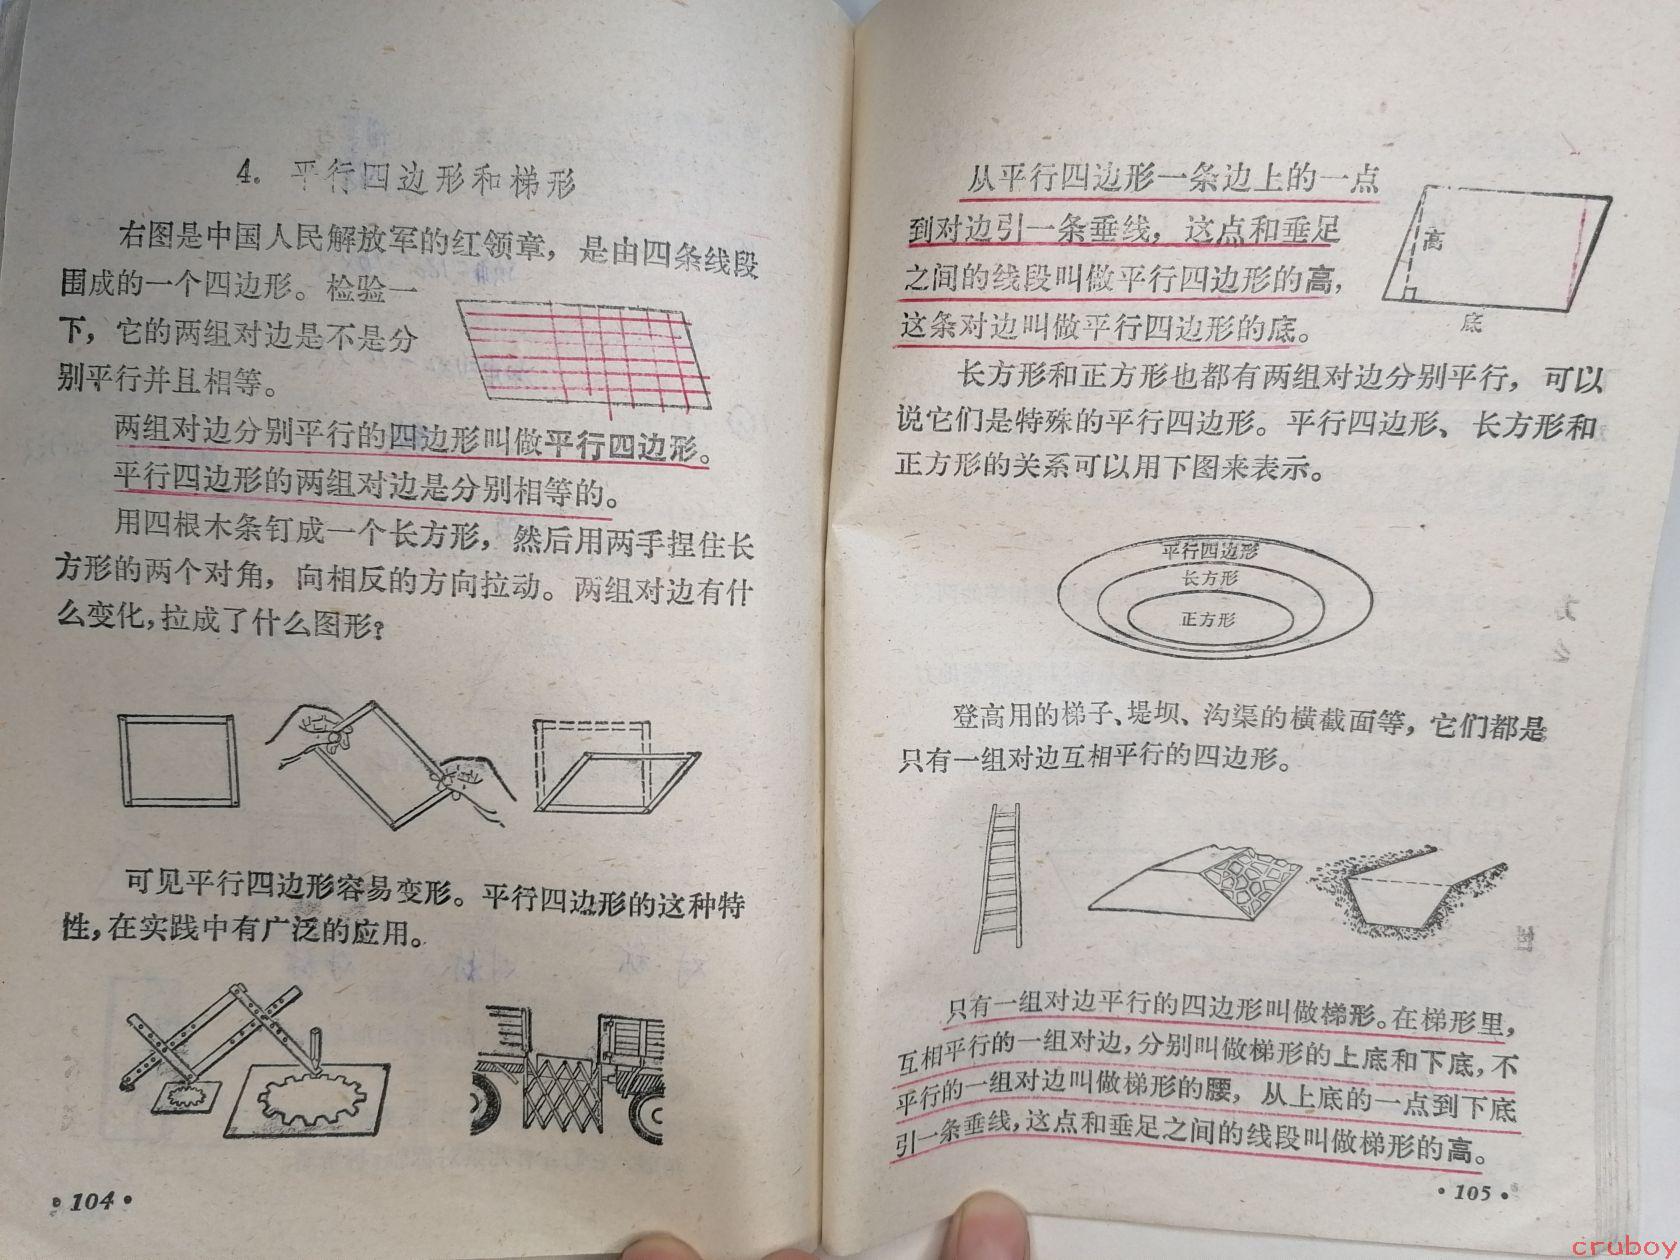 4. 平行四边形和梯形
右图是中国人民解放军的红领章，是由四条线段
围成的一个四边形。检验一
下，它的两组对边是不是分
别平行并且相等。
两组对边分别平行的四边形叫做平行四边形。
平行四边形的两组对边是分别相等的。
用四根木条钉成一个长方形，然后用两手捏住长
方形的两个对角，向相反的方向拉动。两组对边有什
么变化，拉成了什么图形？
可见平行四边形容易变形。平行四边形的这种特
性，在实践中有广泛的应用。
·104·
从平行四边形一条边上的一点
到对边引一条垂线，这点和垂足
之间的线段叫做平行四边形的高，
这条对边叫做平行四边形的底。
高
底
长方形和正方形也都有两组对边分别平行，可以
说它们是特殊的平行四边形。平行四边形、长方形和
正方形的关系可以用下图来表示。
平行四边形
长方形
正方形
登高用的梯子、堤坝、沟渠的横截面等，它们都是
只有一组对边互相平行的四边形。
只有一组对边平行的四边形叫做梯形。在梯形里，
互相平行的一组对边，分别叫做梯形的上底和下底，不
平行的一组对边叫做梯形的腰，从上底的一点到下底
引一条垂线，这点和垂足之间的线段叫做梯形的高。
·105·
cruboy